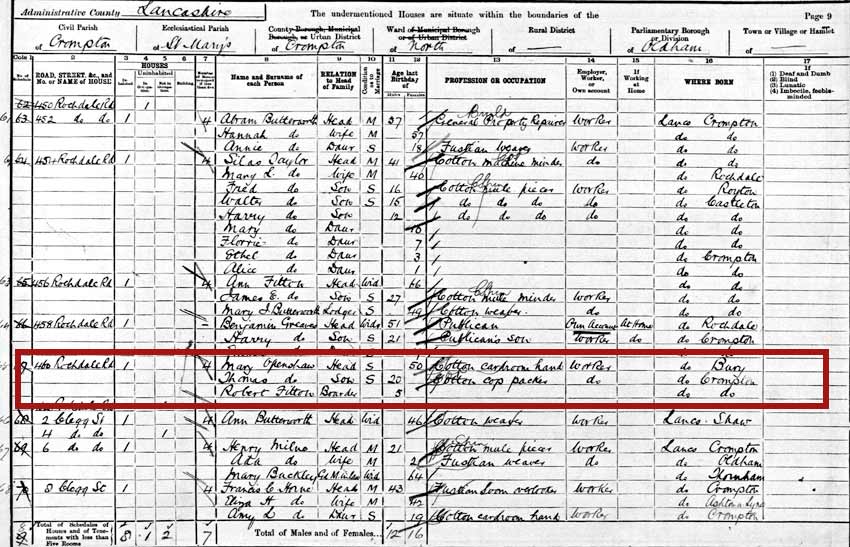 Administrative County Lancashire The undermentioned Houses are situate within the boundaries of the Page 9
Civil Parish Ecclesiastical Parish County Borough, Municipal Borough, or Urban District Ward of Municipal Borough or of Urban District Rural District Parliamentary Borough or Division Town or Village or Hamlet
of Crompton of St Mary's of Crompton of North of — of Oldham of —
Cols 1 2 3 4 5 6 7 8 9 10 11 12 13 14 15 16 17
ROAD, STREET, &c., and No. or NAME of HOUSE HOUSES Uninhabited Name and Surname of each Person RELATION to Head of Family Age last Birthday of PROFESSION OR OCCUPATION Employer, Worker, or Own account If Working at Home WHERE BORN If (1) Deaf and Dumb (2) Blind (3) Lunatic (4) Imbecile, feeble-minded
Males Females
62 450 Rochdale Rd 1
61 63 452 do do 1 4 Abram Butterworth Head M 57 General Property Repairer Worker Lancs Crompton
Hannah do Wife M 57 do do
Annie do Daur S 18 Fustian weaver Worker do do
62 64 454 Rochdale Rd 1 4 Silas Taylor Head M 41 Cotton machine minder do do do
Mary L. do Wife M 40 do Rochdale
Fred do Son S 16 Cotton mule piecer Worker do Royton
Walter do Son S 15 do do do do do Castleton
Harry do Son 12 do do do do do do
Mary do Daur 10 do do
Florrie do Daur 7 do do
Ethel do Daur 3 do Crompton
Alice do Daur 1 do do
63 65 456 Rochdale Rd 1 4 Ann Fitton Head Wid 66 do do
James E. do Son S 27 Cotton mule minder Worker do do
Mary J Butterworth Lodger S 49 Cotton weaver do do do
64 66 458 Rochdale Rd 1 – Benjamin Greaves Head Widr 51 Publican Own Account At Home do Rochdale
Harry do Son S 21 Publican's son Worker do do Crompton
460 Rochdale Rd 1 4 Mary Openshaw Head S 50 Cotton cardroom hand Worker do Bury
Thomas do Son S 20 Cotton cop packer do do Crompton
Robert Fitton Boarder 5 do do
2 Clegg St 1 4 Ann Butterworth Head Wid 46 Cotton weaver Worker Lancs Shaw
4 do do 1
67 69 6 do do 1 4 Henry Milne Head M 21 Cotton mule piecer Worker Lancs Crompton
Ada do Wife M 21 Fustian weaver do do Oldham
Mary Buckley Wid 64 do Thornham
68 8 Clegg St 1 4 Francis C Horne Head M 43 Fustian Loom overlooker Worker do Crompton
Eliza H do Wife M 42 do
Amy L do Daur S 19 Cotton cardroom hand Worker do Crompton
Total of Schedules of Houses and of Tenements with less than Five Rooms 8 1 2 7 Total of Males and of Females... 12 16